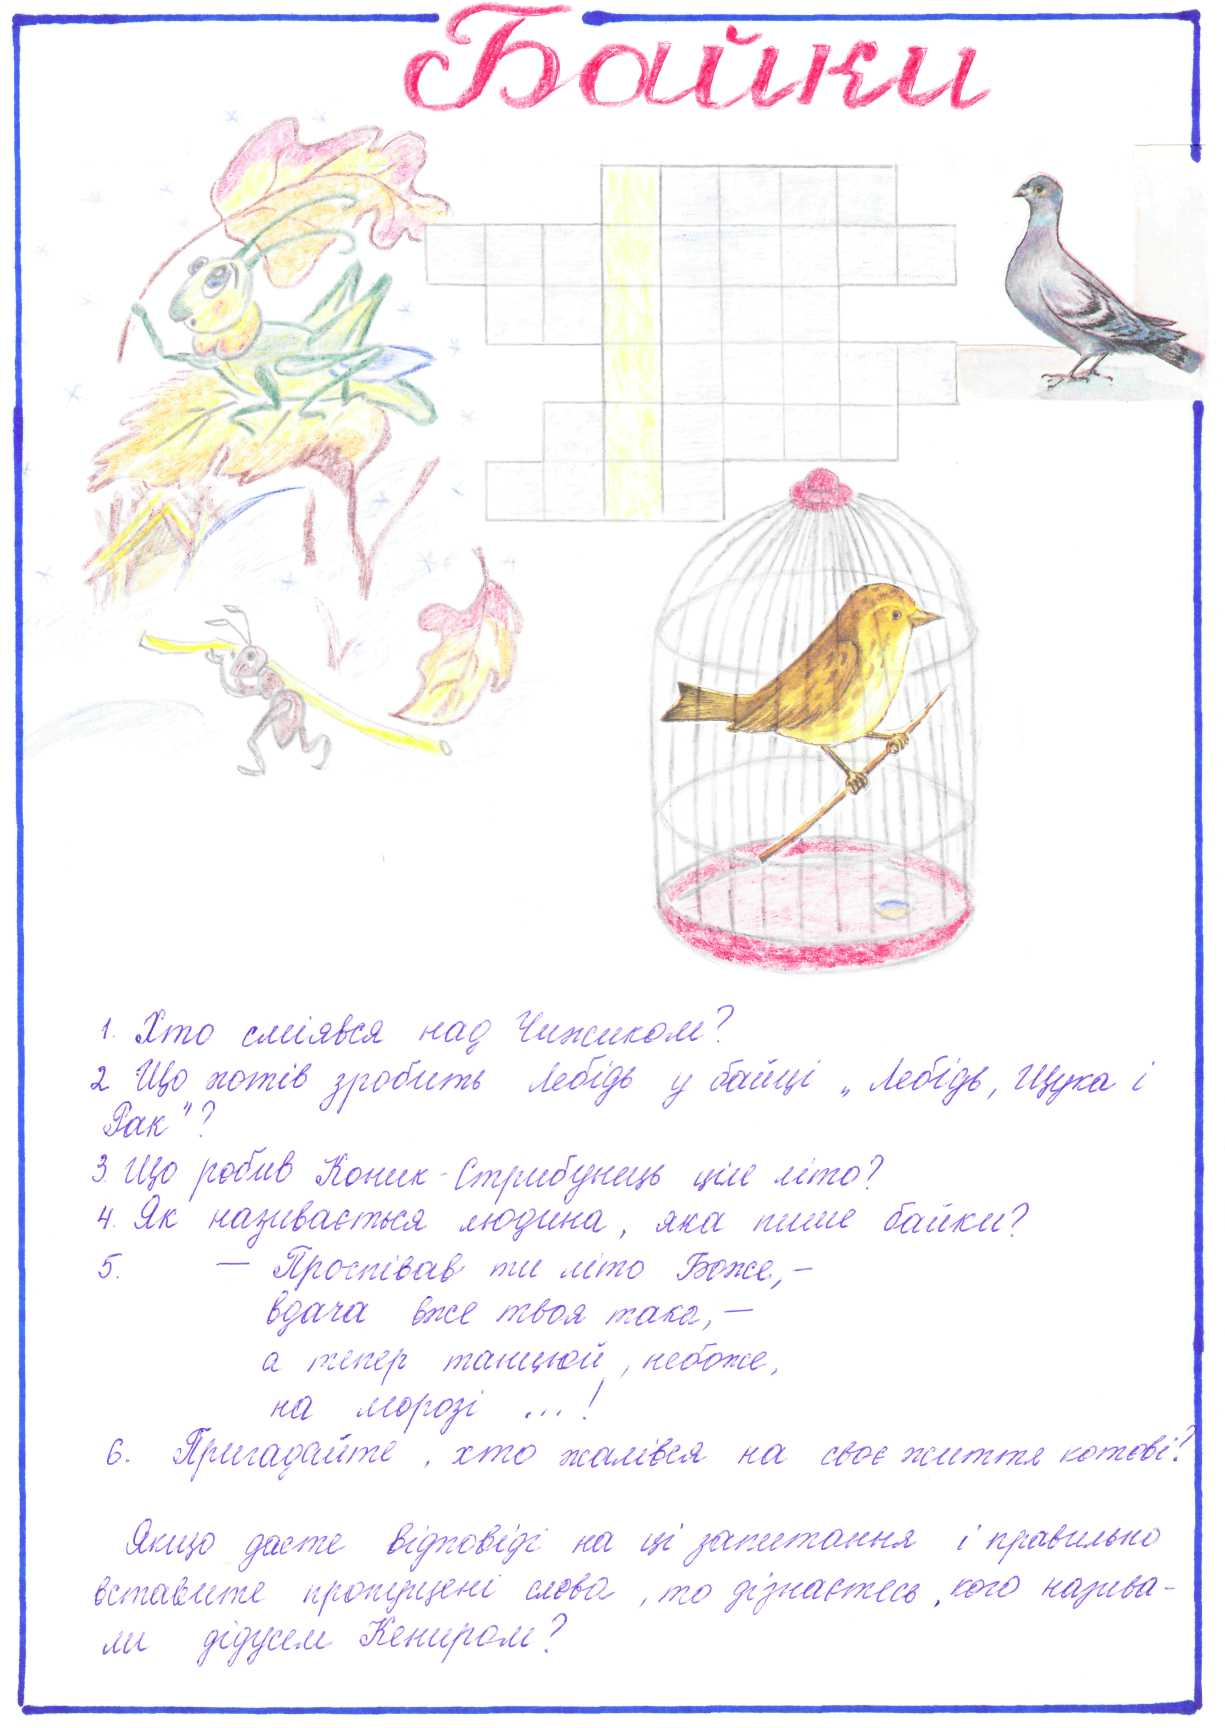 Байки
1. Хто сміявся над Чижиком?
2 Що хотів зробить Лебідь у байці „Лебідь, Щука і
Рак"?
3. Що робив Коник-Стрибунець ціле літо?
4. Як називається людина, яка пише байки?
5. — Проспівав ти літо Боже,–
вдача вже твоя така,—
а тепер танцюй, небоже,
на морозі ...!
6. Пригадайте, хто жалівся на своє життя котові?
Якщо дасте відповіді на ці запитання і правильно
вставите пропущені слова, то дізнаєтесь, кого назива-
ли дідусем Кениром?